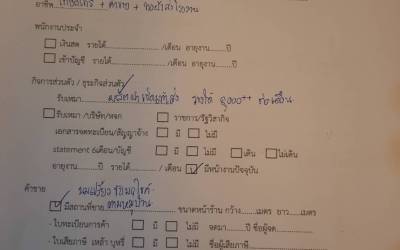 อาชีพ เกษตรกร + ค้าขาย +
พนักงานประจำ
เงินสด รายได้ /เดือน อายุงาน ปี
เข้าบัญชี รายได้ /เดือน อายุงาน ปี
กิจการส่วนตัว / ธุรกิจส่วนตัว
รับเหมา รายได้ 9,000++ ต่อเดือน
รับเหมา /บริษัท/หจก ราชการ/รัฐวิสาหกิจ
เอกสารจดทะเบียน/สัญญาจ้าง มี ไม่มี
statement 6เดือน/บัญชี มี ไม่มี เดิน ไม่เดิน
อายุงาน ปี รายได้ /เดือน มีหน้างานปัจจุบัน
ค้าขาย
มีสถานที่ขาย ขนาดหน้าร้าน กว้าง เมตร ยาว เมตร
- ใบทะเบียนการค้า มี ไม่มี จดมา ปี ชื่อผู้จด
- ใบเสียภาษี เหล้า บุหรี่ มี ไม่มี ชื่อผู้เสียภาษี